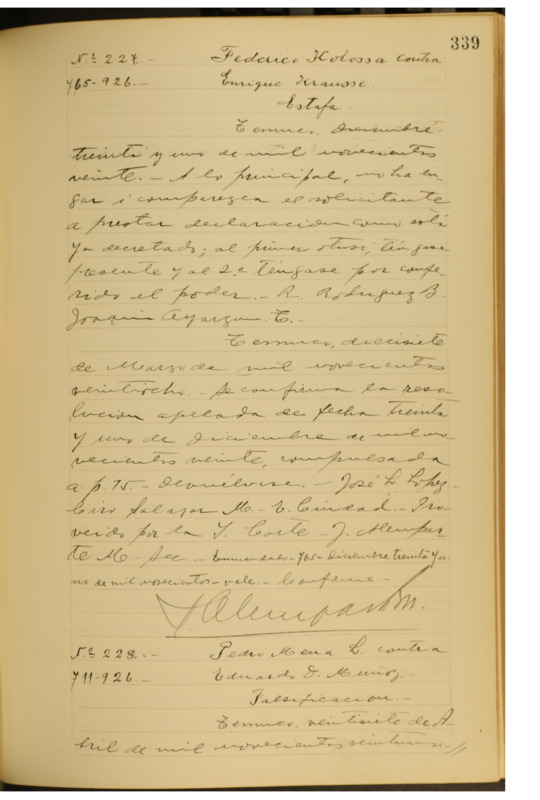 339
N.º 227.- Federico Kolossa contra
765-926.- Enrique Krausse.
Estafa.-
Temuco, Diciembre
treinta y uno de mil novecientos
veinte.- A lo principal, no ha lu-
gar i comparezca el solicitante
a prestar declaracion como está
ya decretado; al primer otrosi, téngase
presente y al 2.º téngase por confe-
rido el poder.- R. Rodriguez B.
Joaquin Ayarzun C.-
Temuco, diecisiete
de Marzo de mil novecientos
veintiocho.- Se confirma la reso-
lucion apelada de fecha treinta
y uno de Diciembre de mil no-
vecientos veinte, compulsada
a p. 75.- Devuélvase.- José L. Lopez-
Ciro Salazar M.- E. Ciudad.- Pro
veido por la I. Corte.- J. Alempar-
te M.- Sec.- Enmendado-765-Diciembre treinta y u-
no de mil novecientos-vale.- Conforme.-
J. Alemparte M.
N.º 228.- Pedro Mena L. contra
711-926.- Eduardo D. Muñoz.
Falsificacion.-
Temuco, veintisiete de A-
bril de mil novecientos